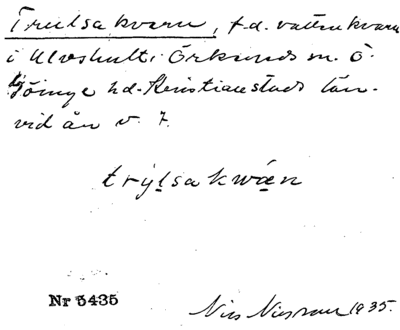 Trulsa kvarn, f.d. vattenkvarn
i Ulvshult i Örkeneds sn. Ö.
Göinge hd. Kristianstads län.
vid ån v. 7.
trýlsa kwæn
Nr 5435
Nils Nilsson 1935.